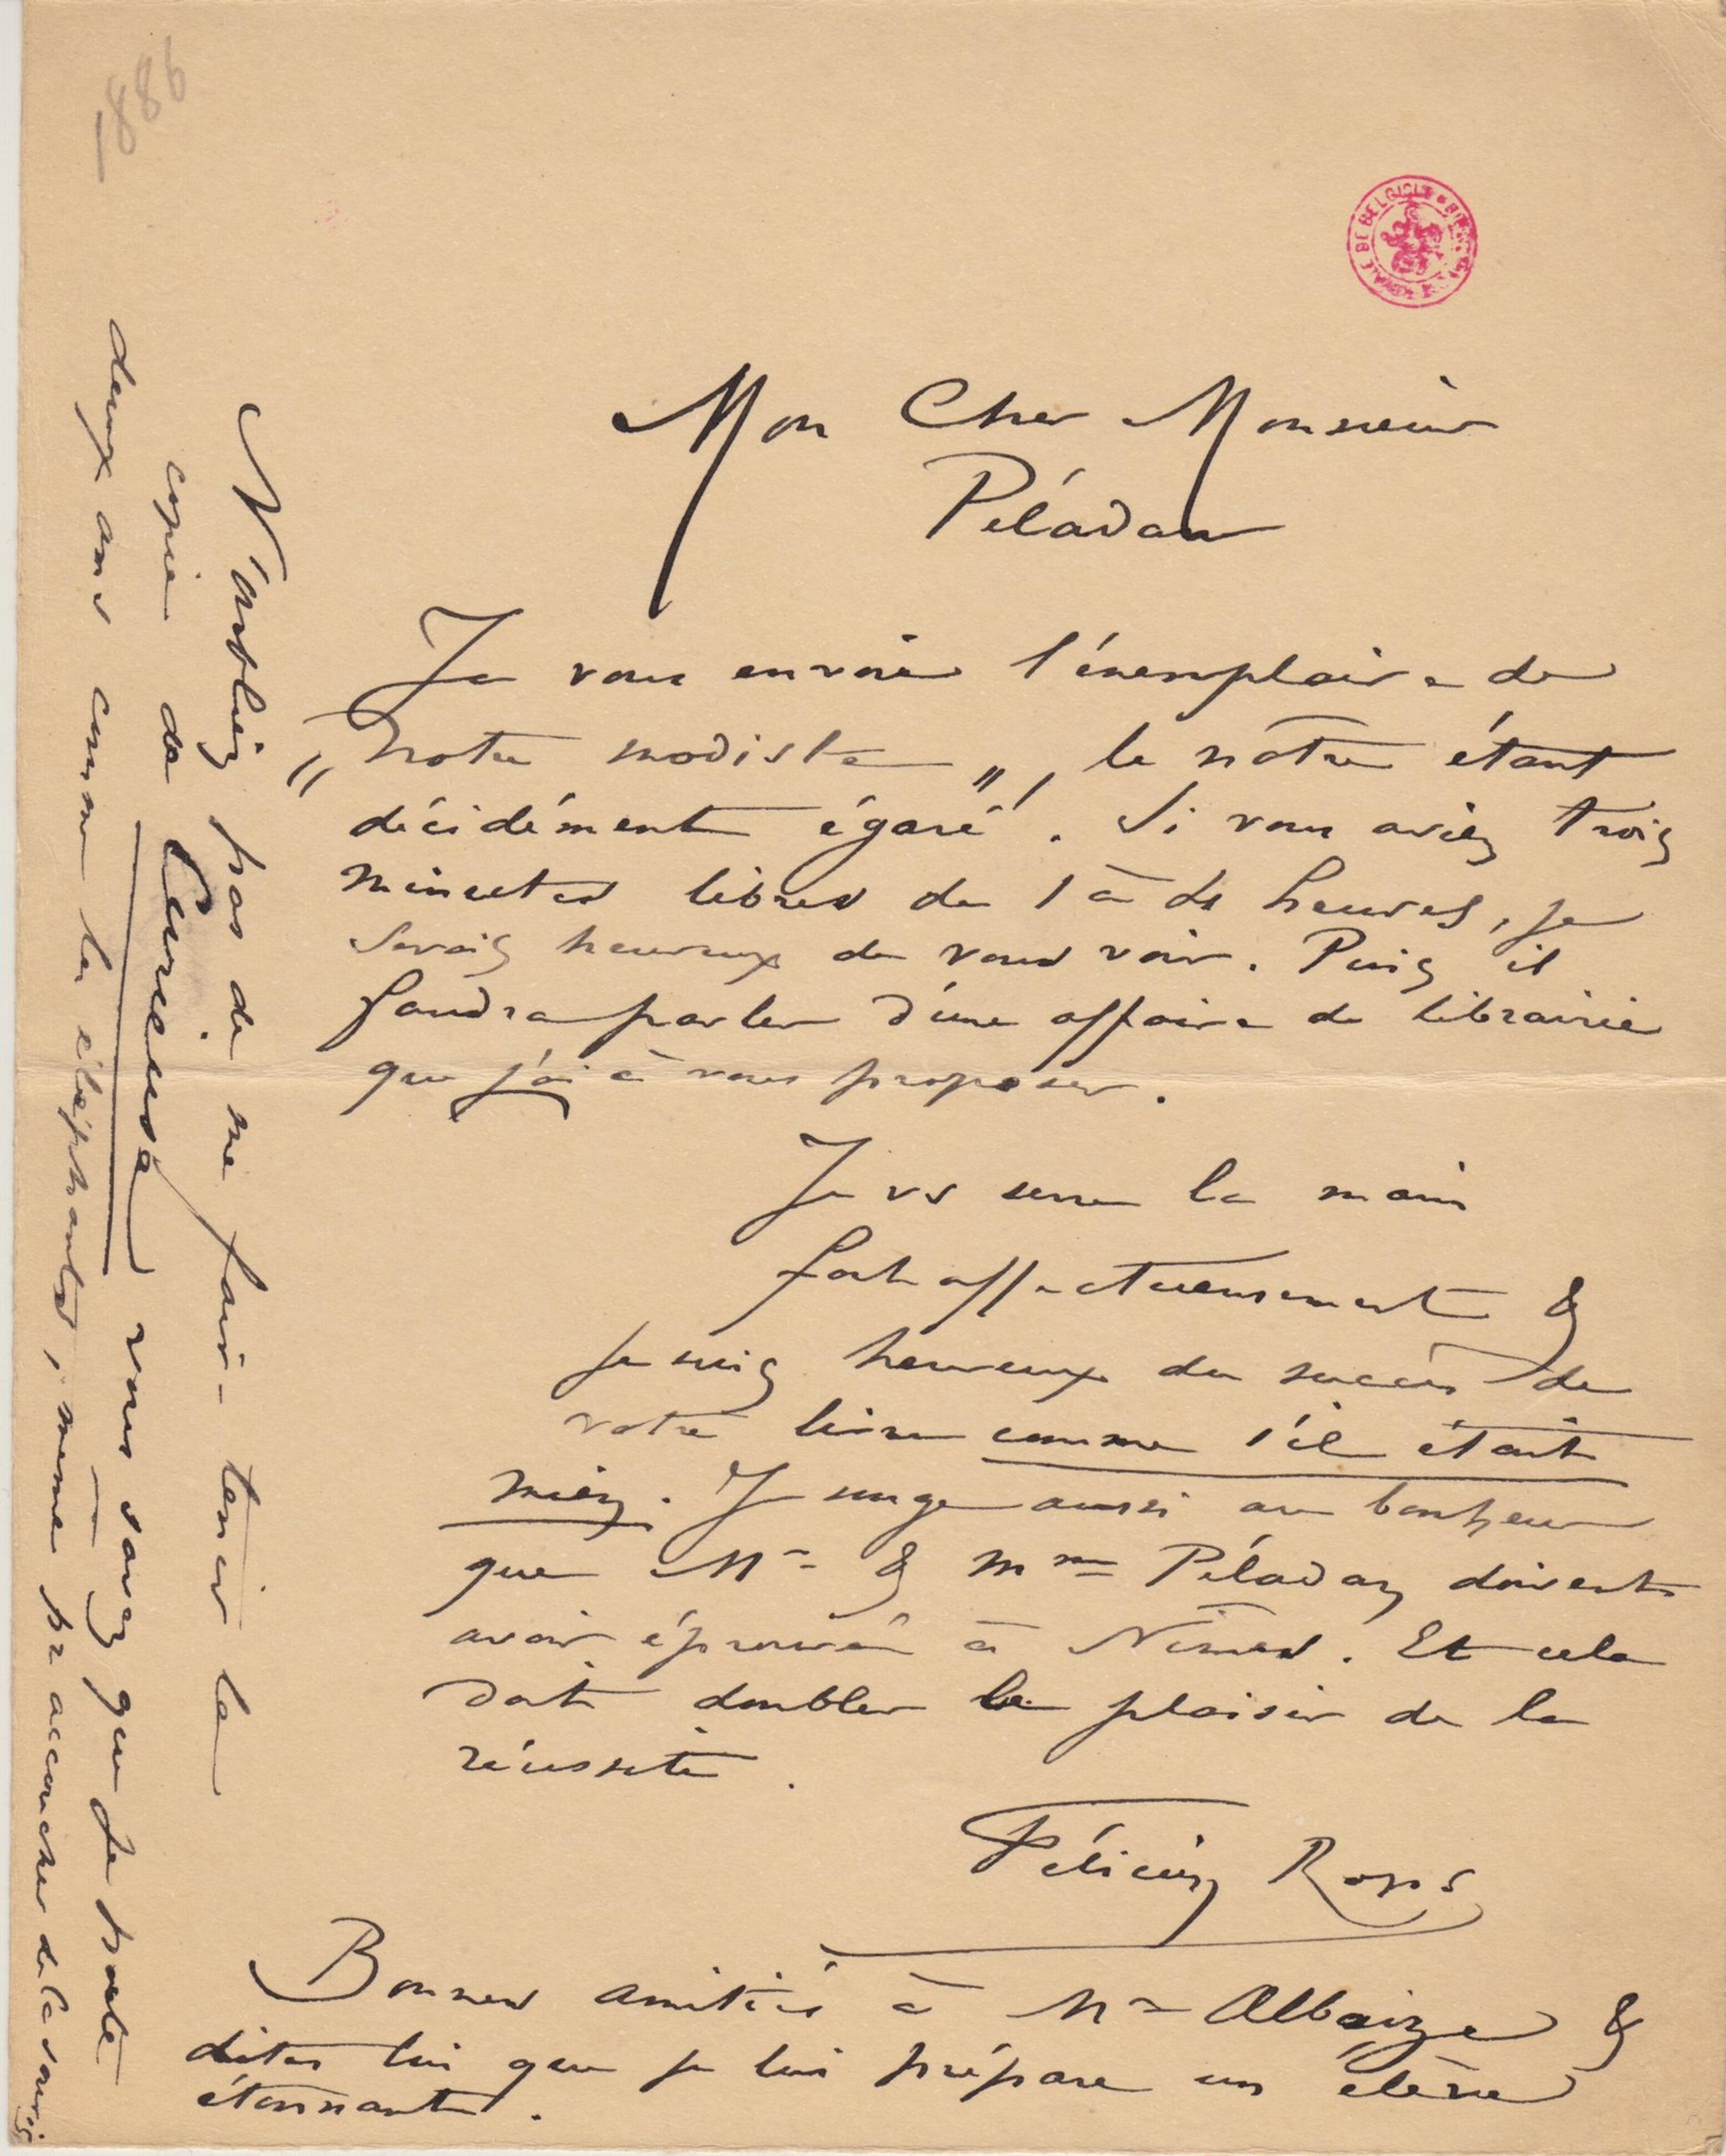 1886
Mon Cher Monsieur
Péladan
Je vous envoie l'exemplaire de
"Notre modiste", le nôtre étant
décidément égaré. Si vous aviez trois
minutes libres de 1 à heures, je
serais heureux de vous voir. Puis il
faudra parler d'une affaire de librairie
que j'ai à vous proposer.
Je vs serre la main
fort affectueusement &
je suis heureux du succès de
votre livre comme s'il était
mien. Je songe aussi au bonheur
que Mr & Mme Péladan doivent
avoir éprouvé à Nîmes. Et cela
doit doubler le plaisir de la
réussite.
Félicien Rops
Bonnes amitiés à Mr Albaize &
dites lui que je lui prépare un élève
étonnant.
N'oubliez pas de me faire tenir la
copie de Curieuse vous savez que je porte
deux ans comme les éléphants, même pr accoucher de la souris
BELGIQUE